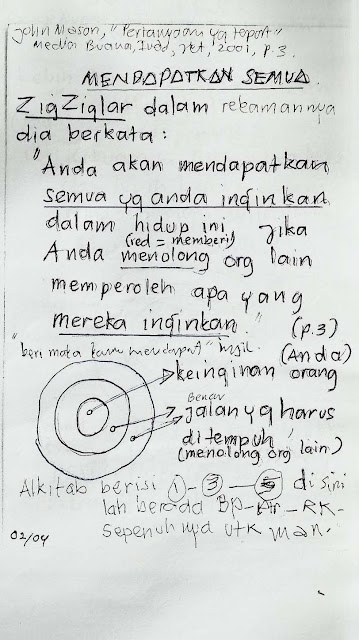 John Mason, "Pertanyaan yg tepat"
Media Buana, Indd, Jkt, 2001, p.3.
MENDAPATKAN SEMUA.
ZigZiglar dalam rekamannya
dia berkata :
"Anda akan mendapatkan
semua yg anda inginkan
dalam hidup ini, jika
(red = memberi)
Anda menolong org lain
memperoleh apa yang
mereka inginkan." (p.3)
"beri maka kamu mendapat" hsil. (Anda)
keinginan orang
Benar
jalan yg harus
ditempuh
(menolong org lain)
Alkitab berisi 1 - 3 - disini
lah berada Bp - - RK -
sepenuhnya utk man.
02/04